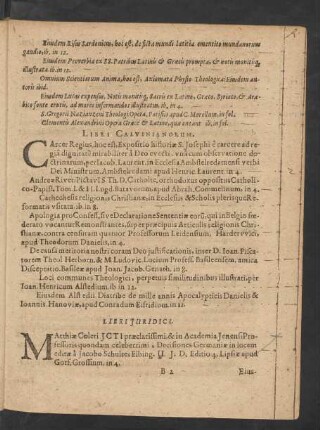 Eiusdem Risus Sardonius, hoc est, de ficta mundi lætitia ementito mundanorum
gaudio, ib. in 12.
Eiusdem Proverbia ex SS. Patribus Latinis & Græcis prompta, & notis moralib.
illustrata ib. in 12.
Omnium Scientiarum Anima, hoc est, Axiomata Physio-Theologica: Eiusdem au-
toris ibid.
Eiusdem Lotus expensis, Notis moralib, Sacris ex Latino, Græco, Syriaco, & Ara-
bico fonte erutis, ad mores informandos illustratum ib, in 4.
S. Gregorii Nazianzeni Theologi Opera, Parisiis apud C. Morellum. in fol.
Clementis Alexandrini Opera Græcè & Latinè, quæ extant ib. in fol.
LIBRI CALVINIANORUM.
CArcer Regius, hoc est, Expositio historiæ S. Josephi è carcere ad re-
giã dignitatẽ mirabiliter à Deo evecti, unà cum observatione do-
ctrinarum, per Jacob. Laurent. in Ecclesia Amstelodamensi verbi
Dei Ministrum. Amstelodami apud Henric. Laurent. in 4.
Andreæ Riveti Pictavi SS. Th. D. Catholicus orthodoxus oppositus Catholi-
co-Papist. Tom. I. & II. Lugd. Batavorum apud Abrah. Commelinum, in 4.
Catechesis religionis Christianæ, in Ecclesiis & Scholis plerisque Re-
formatis usitata. ib. in 8.
Apologia pro Confess. sive Declaratione Sententiæ eorũ, qui in Belgio fœ-
derato vocantur Remonstrantes, super præcipuis Articulis religionis Chri-
stianæ, contra censuram quatuor Professorum Leidensium. Hardervvici,
apud Theodorum Danielis, in 4.
De causa meritoria nostri coram Deo justificationis, inter D. Ioan. Pisca-
torem Theol. Herborn. & M. Ludovic. Lucium Profess. Basileensem, amica
Disceptatio, Basileæ apud Ioan. Jacob. Genath. in 8.
Loci communes Theologici, perpetuis similitudinibus illustrati per
Ioan. Henricum Alstedium. ib. in 12.
Eiusdem Alstedii Diatribe de mille annis Apocalypticis Danielis &
Ioannis, Hanoviæ, apud Conradum Eifridium, in 12.
LIBRI JURIDICI.
MAtthiæ Coleri JCTI præclarissimi, & in Academia Jenensi Pro-
fessoris quondam celeberrimi, Decisiones Germaniæ in lucem
editæ à Jacobo Schultes Elbing. U. J. D. Editio 4. Lipsiæ apud
Gotf. Grossium. in 4.
B 2
Eius-